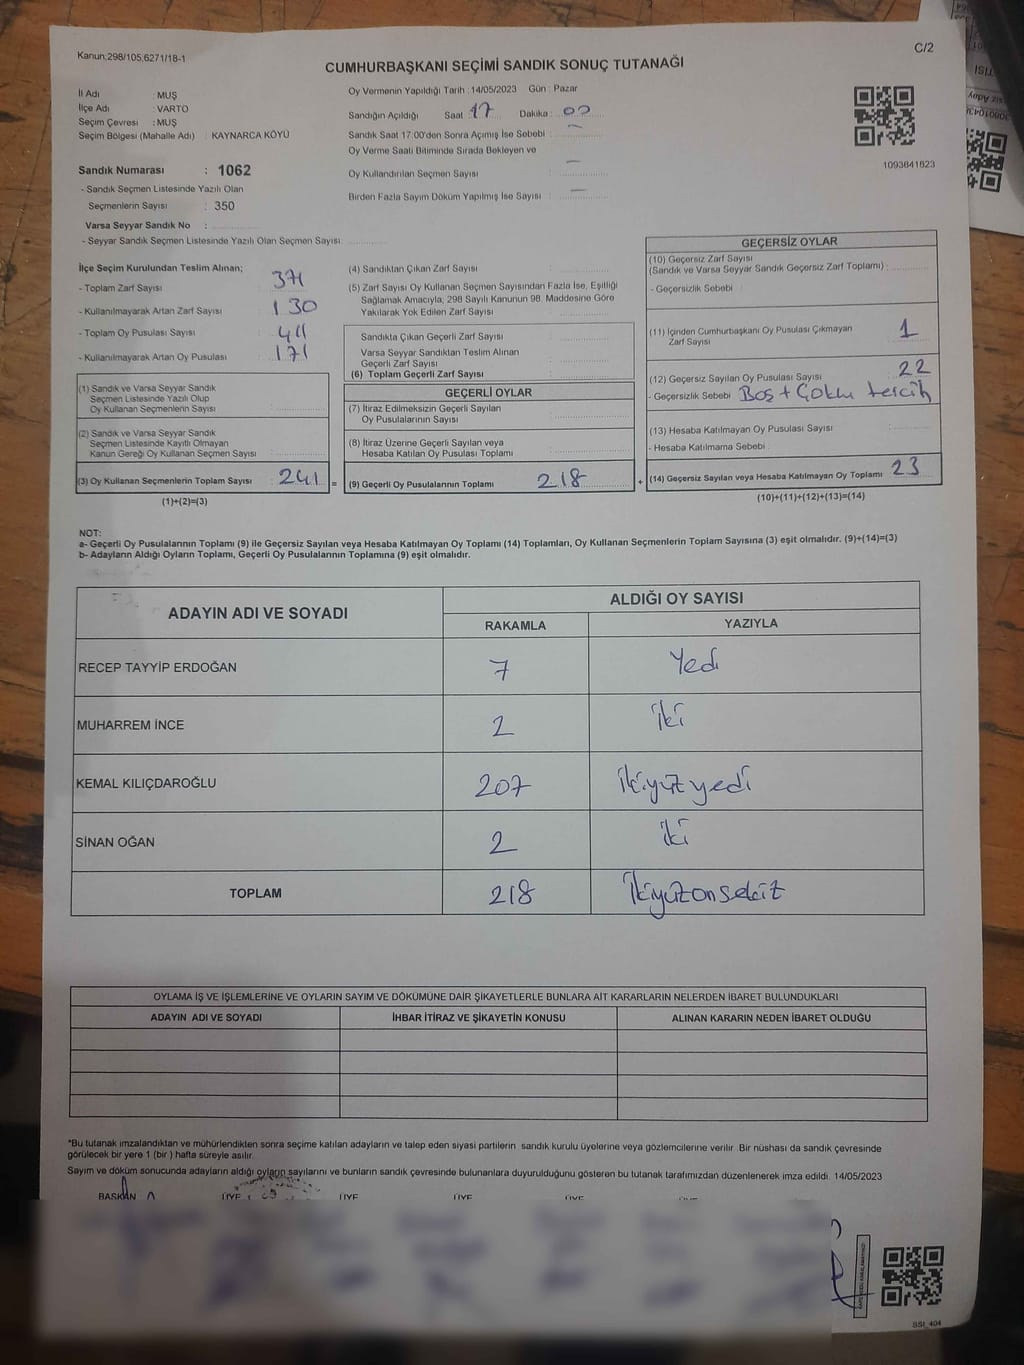 Kanun;298/105,6271/18-1
C/2
CUMHURBAŞKANI SEÇİMİ SANDIK SONUÇ TUTANAĞI
İl Adı : MUŞ
İlçe Adı : VARTO
Seçim Çevresi : MUŞ
Seçim Bölgesi (Mahalle Adı) : KAYNARCA KÖYÜ
Sandık Numarası : 1062
- Sandık Seçmen Listesinde Yazılı Olan
Seçmenlerin Sayısı : 350
Varsa Seyyar Sandık No :
- Seyyar Sandık Seçmen Listesinde Yazılı Olan Seçmen Sayısı:
Oy Vermenin Yapıldığı Tarih : 14/05/2023 Gün : Pazar
Sandığın Açıldığı Saat 17 Dakika : 00
Sandık Saat 17:00'den Sonra Açımış İse Sebebi : —
Oy Verme Saati Bitiminde Sırada Bekleyen ve
Oy Kullandırılan Seçmen Sayısı : —
Birden Fazla Sayım Döküm Yapılmış İse Sayısı : —
1093641623
İlçe Seçim Kurulundan Teslim Alınan;
- Toplam Zarf Sayısı 371
- Kullanılmayarak Artan Zarf Sayısı 130
- Toplam Oy Pusulası Sayısı 411
- Kullanılmayarak Artan Oy Pusulası 171
(1) Sandık ve Varsa Seyyar Sandık
Seçmen Listesinde Yazılı Olup
Oy Kullanan Seçmenlerin Sayısı
(2) Sandık ve Varsa Seyyar Sandık
Seçmen Listesinde Kayıtlı Olmayan
Kanun Gereği Oy Kullanan Seçmen Sayısı
(3) Oy Kullanan Seçmenlerin Toplam Sayısı : 241 =
(1)+(2)=(3)
(4) Sandıktan Çıkan Zarf Sayısı :
(5) Zarf Sayısı Oy Kullanan Seçmen Sayısından Fazla İse, Eşitliği
Sağlamak Amacıyla, 298 Sayılı Kanunun 98. Maddesine Göre
Yakılarak Yok Edilen Zarf Sayısı :
Sandıkta Çıkan Geçerli Zarf Sayısı
Varsa Seyyar Sandıktan Teslim Alınan
Geçerli Zarf Sayısı
(6) Toplam Geçerli Zarf Sayısı
GEÇERLİ OYLAR
(7) İtiraz Edilmeksizin Geçerli Sayılan
Oy Pusulalarının Sayısı
(8) İtiraz Üzerine Geçerli Sayılan veya
Hesaba Katılan Oy Pusulası Toplamı
(9) Geçerli Oy Pusulalarının Toplamı 218 +
GEÇERSİZ OYLAR
(10) Geçersiz Zarf Sayısı
(Sandık ve Varsa Seyyar Sandık Geçersiz Zarf Toplamı) :
- Geçersizlik Sebebi :
(11) İçinden Cumhurbaşkanı Oy Pusulası Çıkmayan
Zarf Sayısı 1
(12) Geçersiz Sayılan Oy Pusulası Sayısı 22
- Geçersizlik Sebebi Boş + Çoklu tercih
(13) Hesaba Katılmayan Oy Pusulası Sayısı :
- Hesaba Katılmama Sebebi
(14) Geçersiz Sayılan veya Hesaba Katılmayan Oy Toplamı 23
(10)+(11)+(12)+(13)=(14)
NOT:
a- Geçerli Oy Pusulalarının Toplamı (9) ile Geçersiz Sayılan veya Hesaba Katılmayan Oy Toplamı (14) Toplamları, Oy Kullanan Seçmenlerin Toplam Sayısına (3) eşit olmalıdır. (9)+(14)=(3)
b- Adayların Aldığı Oyların Toplamı, Geçerli Oy Pusulalarının Toplamına (9) eşit olmalıdır.
ADAYIN ADI VE SOYADI
ALDIĞI OY SAYISI
RAKAMLA YAZIYLA
RECEP TAYYİP ERDOĞAN 7 Yedi
MUHARREM İNCE 2 İki
KEMAL KILIÇDAROĞLU 207 İkiyüzyedi
SİNAN OĞAN 2 iki
TOPLAM 218 İkiyüzonsekiz
OYLAMA İŞ VE İŞLEMLERİNE VE OYLARIN SAYIM VE DÖKÜMÜNE DAİR ŞİKAYETLERLE BUNLARA AİT KARARLARIN NELERDEN İBARET BULUNDUKLARI
ADAYIN ADI VE SOYADI İHBAR İTİRAZ VE ŞİKAYETİN KONUSU ALINAN KARARIN NEDEN İBARET OLDUĞU
*Bu tutanak imzalandıktan ve mühürlendikten sonra seçime katılan adayların ve talep eden siyasi partilerin sandık kurulu üyelerine veya gözlemcilerine verilir. Bir nüshası da sandık çevresinde
görülecek bir yere 1 (bir ) hafta süreyle asılır.
Sayım ve döküm sonucunda adayların aldığı oyların sayılarını ve bunların sandık çevresinde bulunanlara duyurulduğunu gösteren bu tutanak tarafımızdan düzenlenerek imza edildi. 14/05/2023
BAŞKAN ÜYE ÜYE ÜYE ÜYE ÜYE
SSt_404